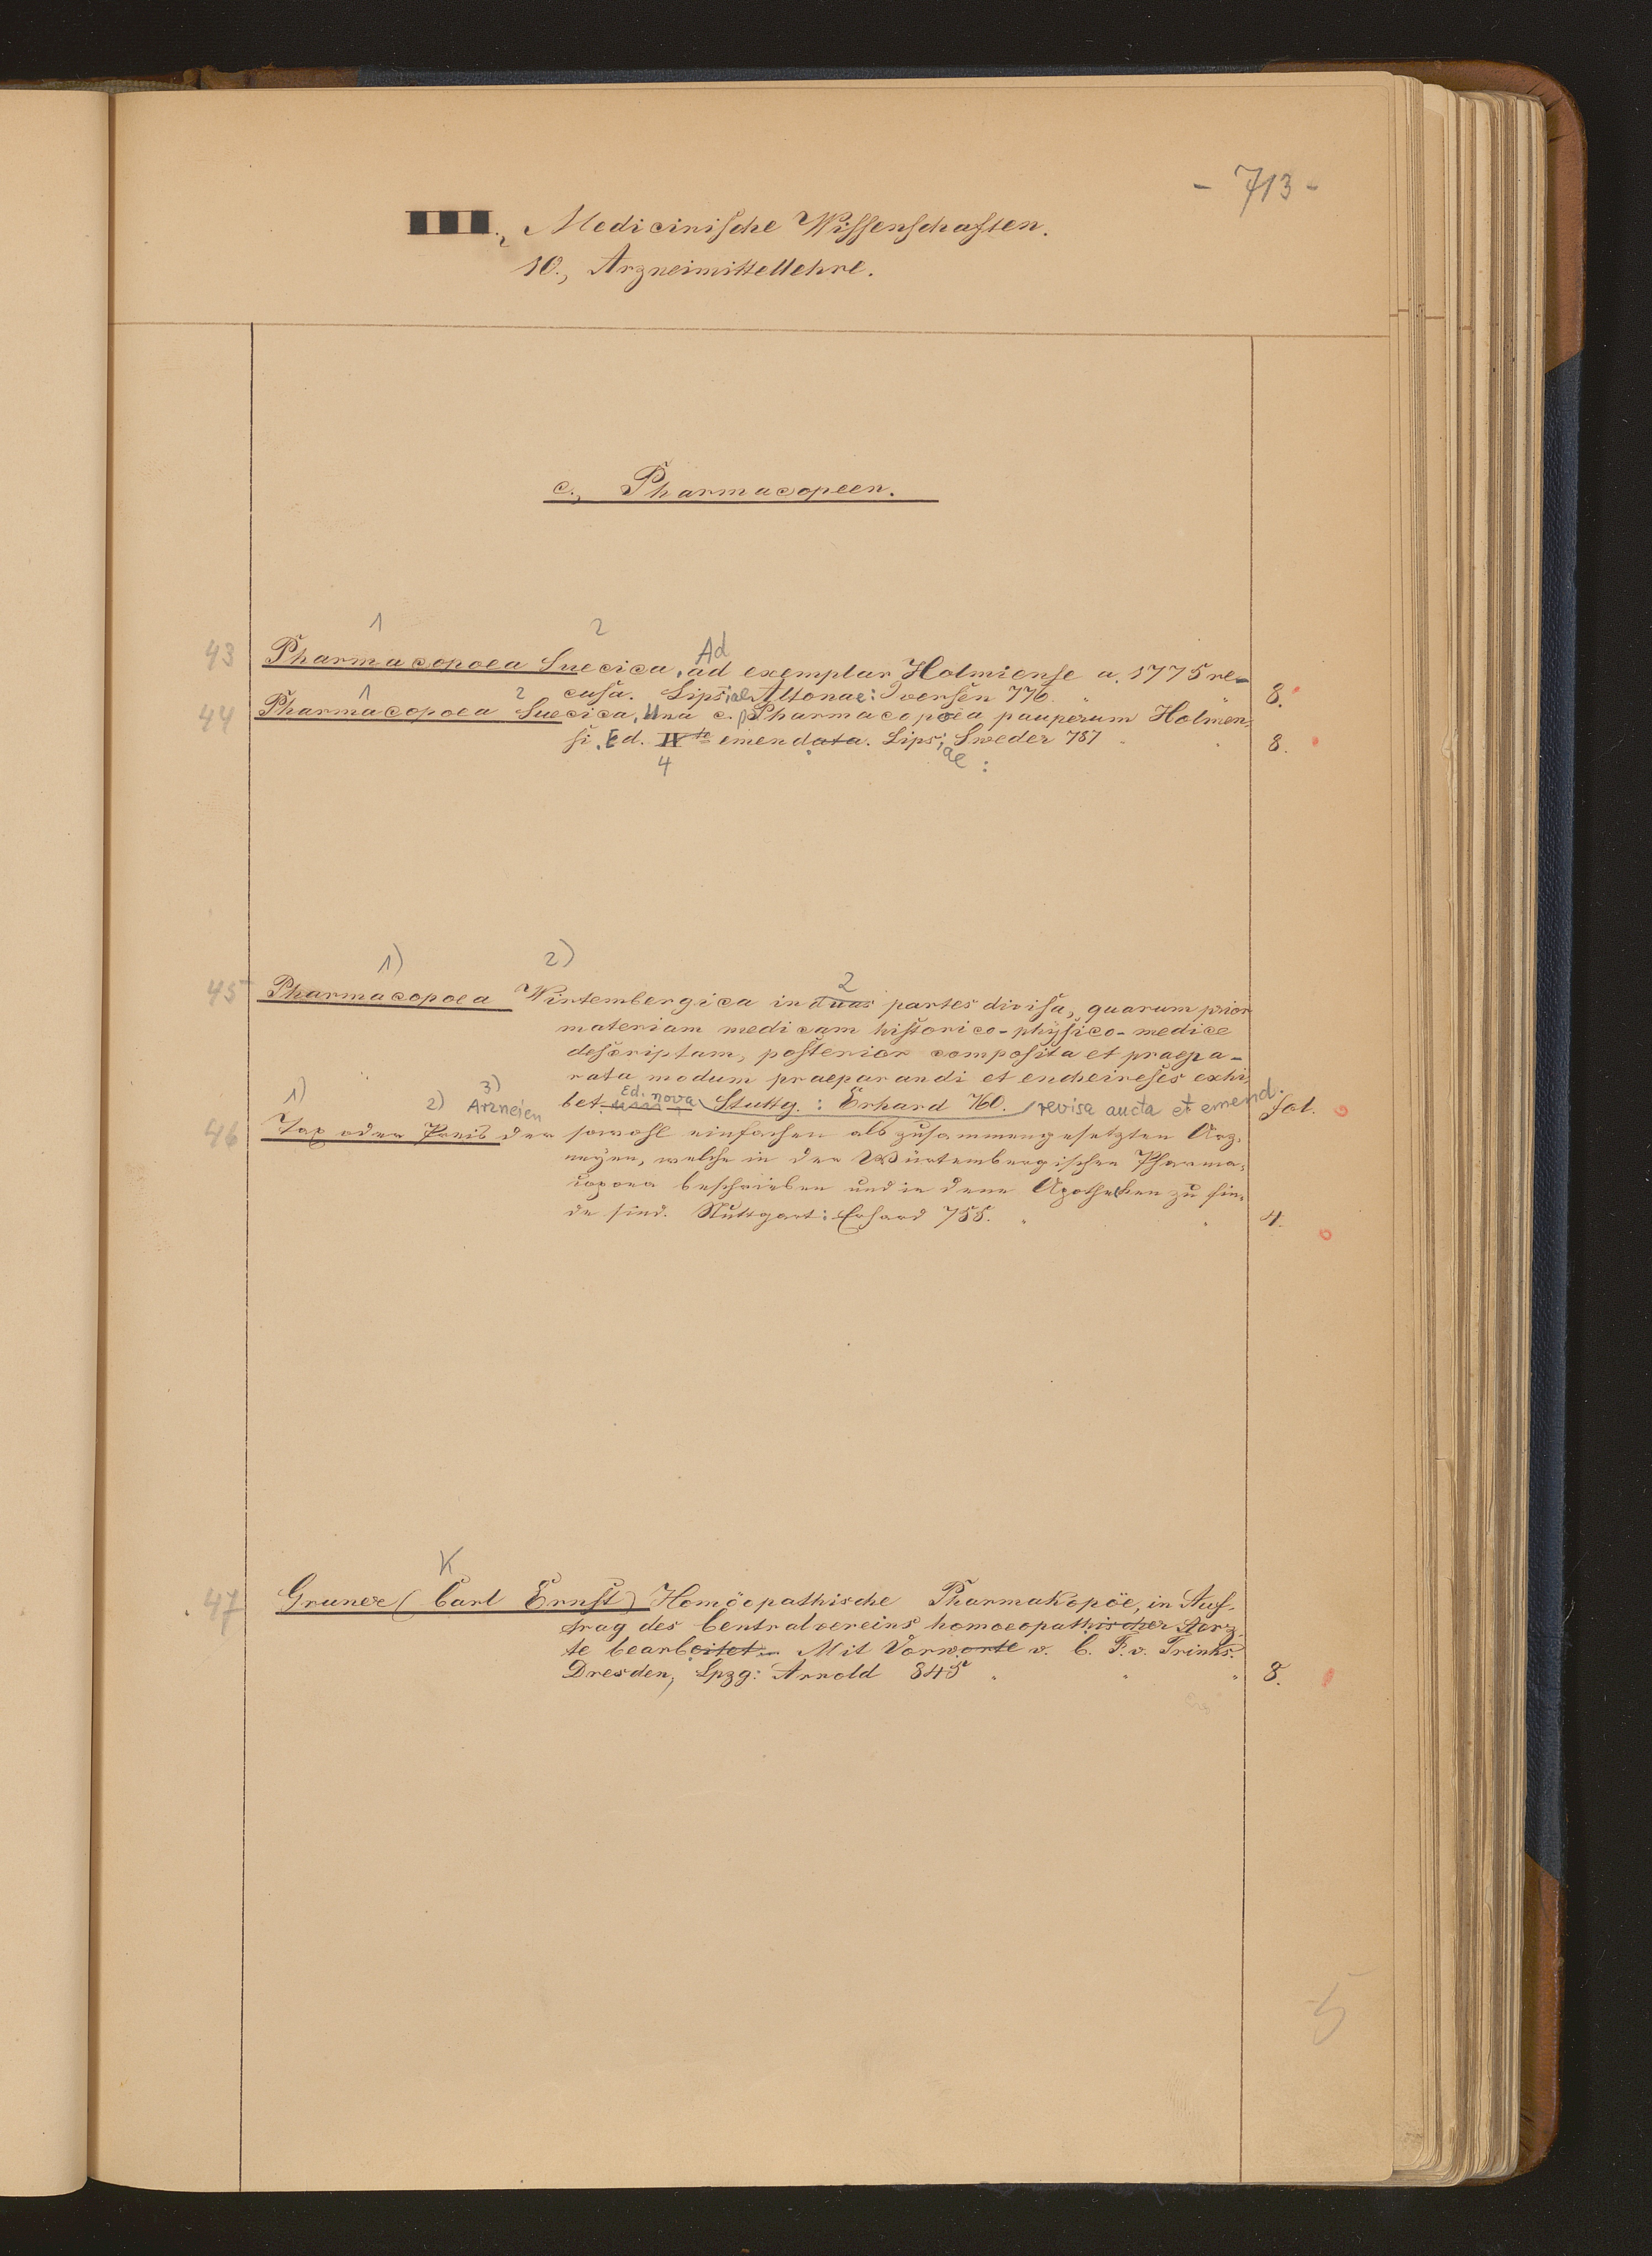 - 713 -
III., Medicinische Wissenschaften.
10., Arzneimittellehre.
c., Pharmacopeen.
1 2 Ad
43 Pharmacopoea Suecica, ad exemplar Holmiense a. 1775 re-
cusa. Lips;ae Altonae: Iversen 776. " " 8.
1 2
44 Pharmacopoea Suecica, Una c. Pharmacopoea pauperum Holmen-
si. Ed. IV te emendata. Lips;ae: Sweder 787 " " 8.
4
1) 2) 2
45 Pharmacopoea Wirtembergica in duas partes divisa, quarum prior
materiam medicam historico-physico-medice
descriptam, posterior composita et praepa-
rata modum praeparandi et encheireses exhi-
bet. Ed. nova Stuttg.: Erhard 760. revisa aucta et emend. fol.
1) 2) 3) Arzneien
46 Tax oder Preis der sowohl einfachen als zusammengesetzten Arz-
neyen, welche in der Würtembergischen Pharma-
copoea beschrieben und in denen Apotheken zu fin-
de sind. Stuttgart: Erhard 755. " " 4.
K
47 Gruner (Carl Ernst) Homöopathische Pharmakopöe, in Auf-
trag des Centralvereins homoeopathischer Aerz-
te bearbeitet. Mit Vorworte v. C. F. v. Trinks.
Dresden, Lpzg: Arnold 845 " " " 8.
5